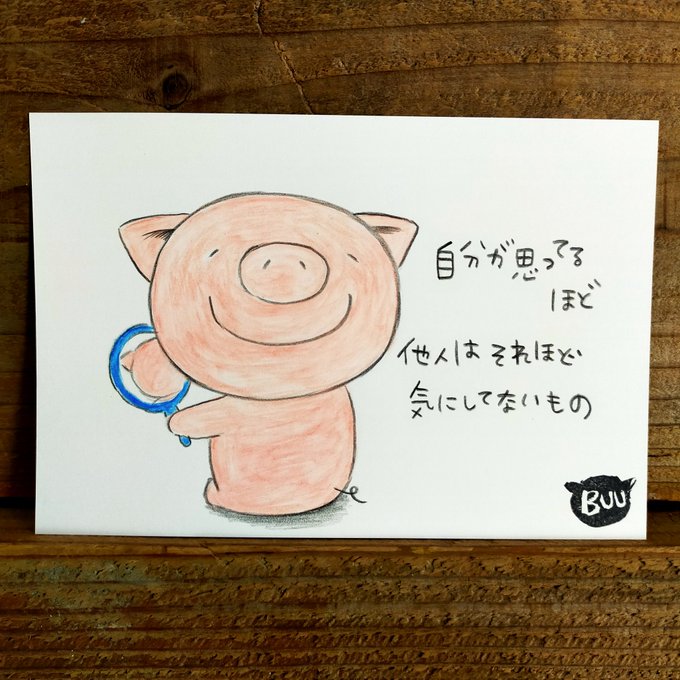 自分が思ってる
ほど
他人はそれほど
気にしてないもの
BUU